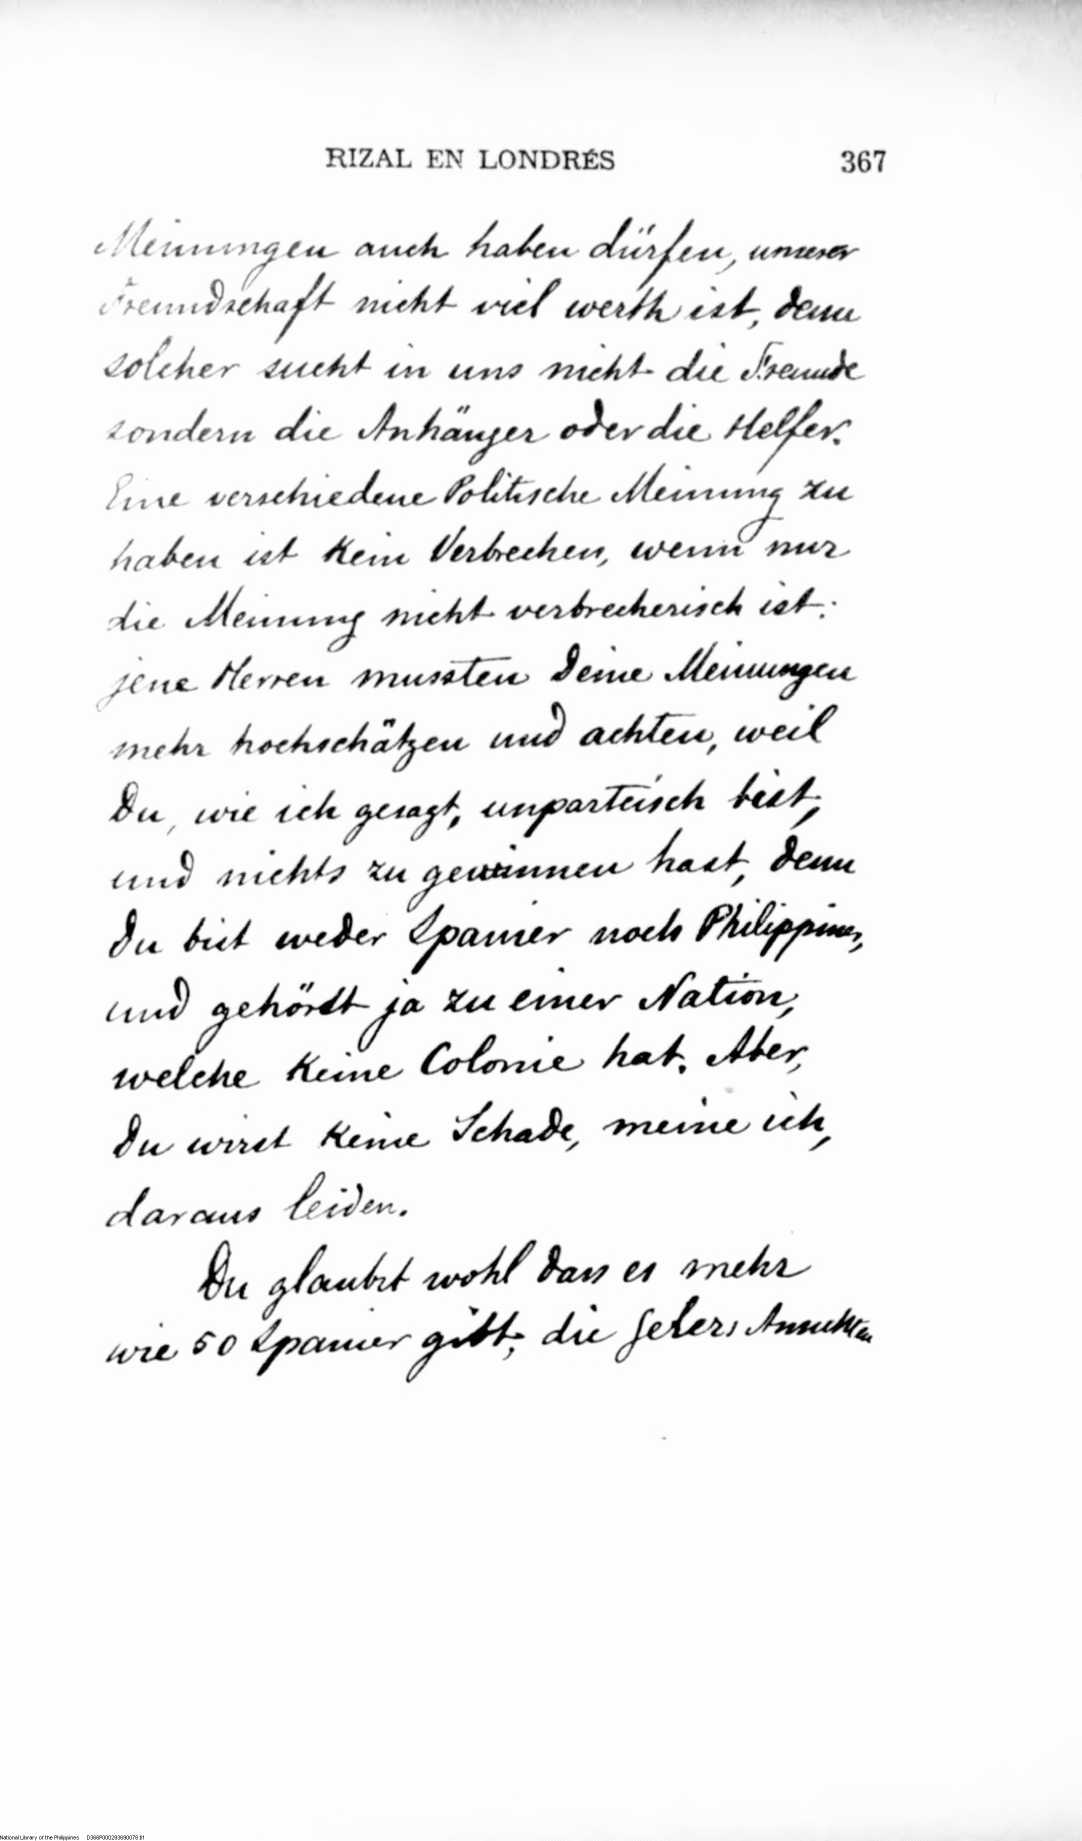 RIZAL EN LONDRÉS 367
Meinungen auch haben dürfen, unserer
Freundschaft nicht viel werth ist, denn
solcher sucht in uns nicht die Freunde
sondern die Anhänger oder die Helfer.
Eine verschiedene Politische Meinung zu
haben ist kein Verbrechen, wenn nur
die Meinung nicht verbrecherisch ist:
jene Herren mussten Deine Meinungen
mehr hochschätzen und achten, weil
Du, wie ich gesagt, unparteiisch bist,
und nichts zu gewinnen hast, denn
Du bist weder Spanier noch Philippiner,
und gehörst ja zu einer Nation,
welche keine Colonie hat. Aber,
Du wirst keine Schade, meine ich,
daraus leiden.
Du glaubst wohl dass es mehr
wie 50 Spanier gibt, die Ansichten
National Library of the Philippines